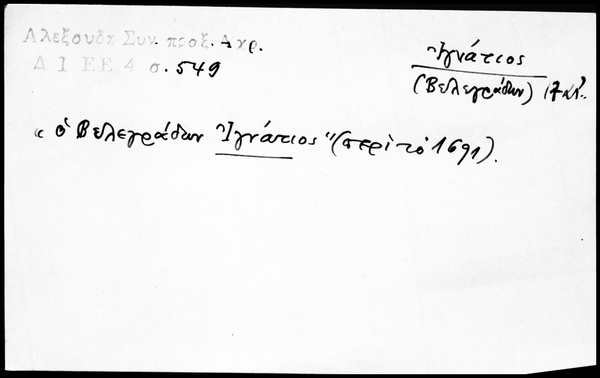 Αλεξούδη Συν. προξ. Αχρ.
Δ 1 ΕΕ 4 σ. 549
Ἰγνάτιος
(Βελεγράδων) 17 αἰ.
« ὁ Βελεγράδων Ἰγνάτιος" (περὶ τὸ 1691).